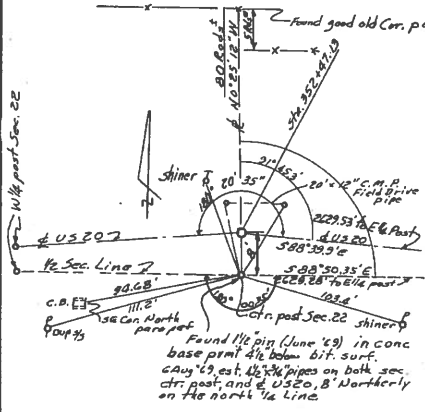 Found good old Cor. p
80 Rods ±
5 Rods
¢ N0°25'12"W
Sta. 352+47.19
W¼ post Sec. 22
shiner
20' 35"
91°45.3'
20'x12" C.M.P.
Field Drive
pipe
2629.53' to E¼ Post
¢ US 20
¢ US 20
S88°39.9'E
½ Sec. Line
S88°50.35'E
2629.28' to E¼ post
C.B.
94.68'
111.2'
103.4'
SE Cor. North
parapet
ctr. post Sec. 22
shiner
Found 1½" pin (June '69) in conc
base prmt 4½" below bit. surf.
6 Aug '69, est. 4½"x¾" pipes on both sec.
ctr. post, and ¢ US 20, 8' Northerly
on the north ¼ Line